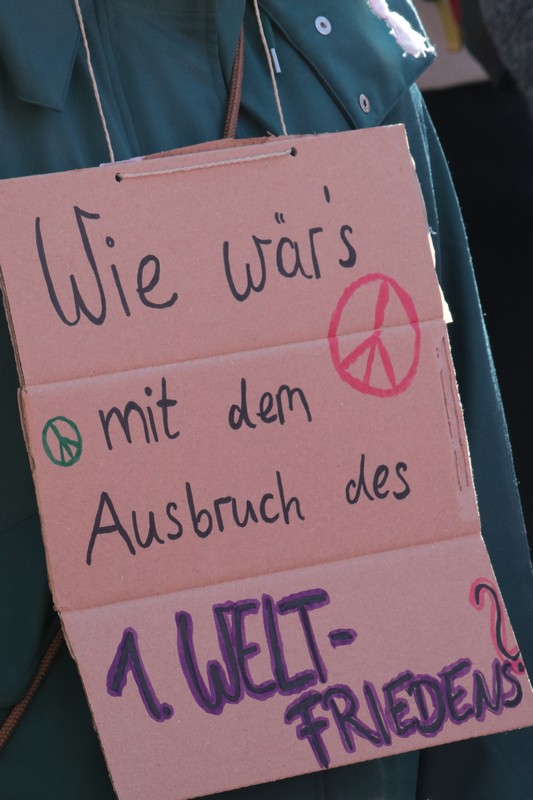 Wie wär's
mit dem
Ausbruch des
1. WELT-
FRIEDENS?